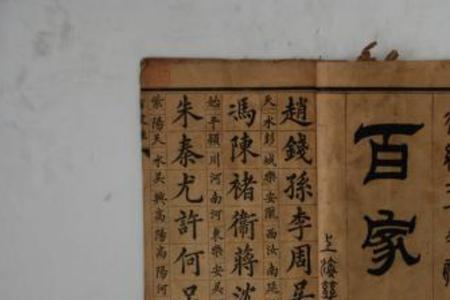 百家
上海
趙錢孫李周吳
天水彭城樂安隴西汝南延
馮陳褚衛蔣沈
始平潁川河南河東樂安吳
朱秦尤許何呂
紫陽天水吳興高陽高陽河